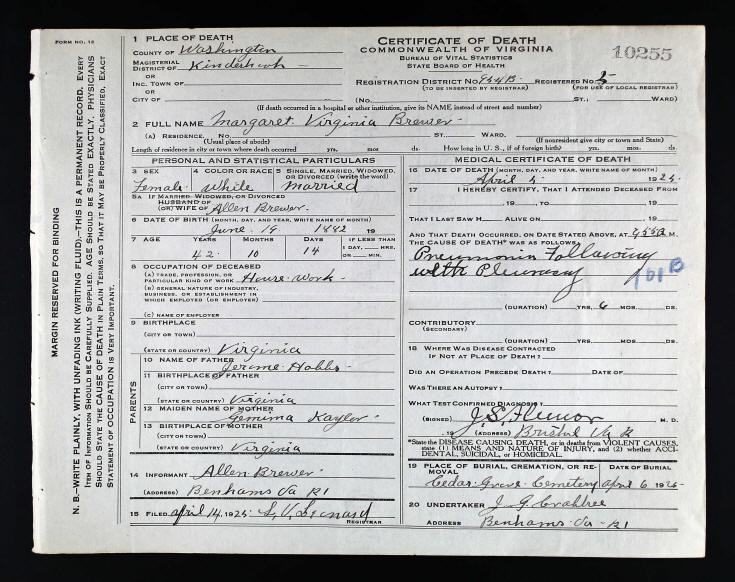 FORM NO. 12
MARGIN RESERVED FOR BINDING
N. B.—WRITE PLAINLY, WITH UNFADING INK (WRITING FLUID),—THIS IS A PERMANENT RECORD. EVERY
ITEM OF INFORMATION SHOULD BE CAREFULLY SUPPLIED. AGE SHOULD BE STATED EXACTLY. PHYSICIANS
SHOULD STATE THE CAUSE OF DEATH IN PLAIN TERMS, SO THAT IT MAY BE PROPERLY CLASSIFIED. EXACT
STATEMENT OF OCCUPATION IS VERY IMPORTANT.
1 PLACE OF DEATH
COUNTY OF Washington
MAGISTERIAL
DISTRICT OF Kinderhook
OR
INC. TOWN OF
OR
CITY OF
CERTIFICATE OF DEATH
COMMONWEALTH OF VIRGINIA
BUREAU OF VITAL STATISTICS
STATE BOARD OF HEALTH
10255
REGISTRATION DISTRICT NO. 954B REGISTERED NO. 5
(TO BE INSERTED BY REGISTRAR) (FOR USE OF LOCAL REGISTRAR)
(No. ST.; WARD)
(If death occurred in a hospital or other institution, give its NAME instead of street and number)
2 FULL NAME Margaret Virginia Brewer
(A) RESIDENCE. NO. ST. WARD
(Usual place of abode) (If nonresident give city or town and State)
Length of residence in city or town where death occurred yrs. mos. ds. How long in U. S., if of foreign birth? yrs. mos. ds.
PERSONAL AND STATISTICAL PARTICULARS
3 SEX Female
4 COLOR OR RACE White
5 SINGLE, MARRIED, WIDOWED, OR DIVORCED (write the word) Married
5A IF MARRIED, WIDOWED, OR DIVORCED
HUSBAND OF
(OR) WIFE OF Allen Brewer
6 DATE OF BIRTH (MONTH, DAY, AND YEAR, WRITE NAME OF MONTH)
June 19 1882 19
7 AGE YEARS MONTHS DAYS IF LESS THAN
42 10 14 1 DAY, HRS.
OR MIN.
8 OCCUPATION OF DECEASED
(A) TRADE, PROFESSION, OR
PARTICULAR KIND OF WORK House-work
(B) GENERAL NATURE OF INDUSTRY,
BUSINESS, OR ESTABLISHMENT IN
WHICH EMPLOYED (OR EMPLOYER)
(C) NAME OF EMPLOYER
9 BIRTHPLACE
(CITY OR TOWN)
(STATE OR COUNTRY) Virginia
PARENTS
10 NAME OF FATHER Jerime Hobbs
11 BIRTHPLACE OF FATHER
(CITY OR TOWN)
(STATE OR COUNTRY) Virginia
12 MAIDEN NAME OF MOTHER Gemima Kaylor
13 BIRTHPLACE OF MOTHER
(CITY OR TOWN)
(STATE OR COUNTRY) Virginia
14 INFORMANT Allen Brewer
(ADDRESS) Benhams Va R1
15 FILED April 14, 1925 S. V. Leonard
REGISTRAR
MEDICAL CERTIFICATE OF DEATH
16 DATE OF DEATH (MONTH, DAY, AND YEAR, WRITE NAME OF MONTH)
April 5 1925
17 I HEREBY CERTIFY, THAT I ATTENDED DECEASED FROM
, 19 , TO , 19
THAT I LAST SAW H ALIVE ON , 19
AND THAT DEATH OCCURRED, ON DATE STATED ABOVE, AT M.
THE CAUSE OF DEATH* WAS AS FOLLOWS:
Pneumonia Following
with Pleurasy 101 B
(DURATION) YRS. 6 MOS. DS.
CONTRIBUTORY
(SECONDARY)
(DURATION) YRS. MOS. DS.
18 WHERE WAS DISEASE CONTRACTED
IF NOT AT PLACE OF DEATH?
DID AN OPERATION PRECEDE DEATH? DATE OF
WAS THERE AN AUTOPSY?
WHAT TEST CONFIRMED DIAGNOSIS?
(SIGNED) J. S. M. D.
19 (ADDRESS) Bristol Va R
*State the DISEASE CAUSING DEATH, or in deaths from VIOLENT CAUSES,
state (1) MEANS AND NATURE OF INJURY, and (2) whether ACCI-
DENTAL, SUICIDAL, or HOMICIDAL.
19 PLACE OF BURIAL, CREMATION, OR RE- DATE OF BURIAL
MOVAL
Cedar Grove Cemetery April 6 1925
20 UNDERTAKER J. G. Crabtree
ADDRESS Benhams Va R1